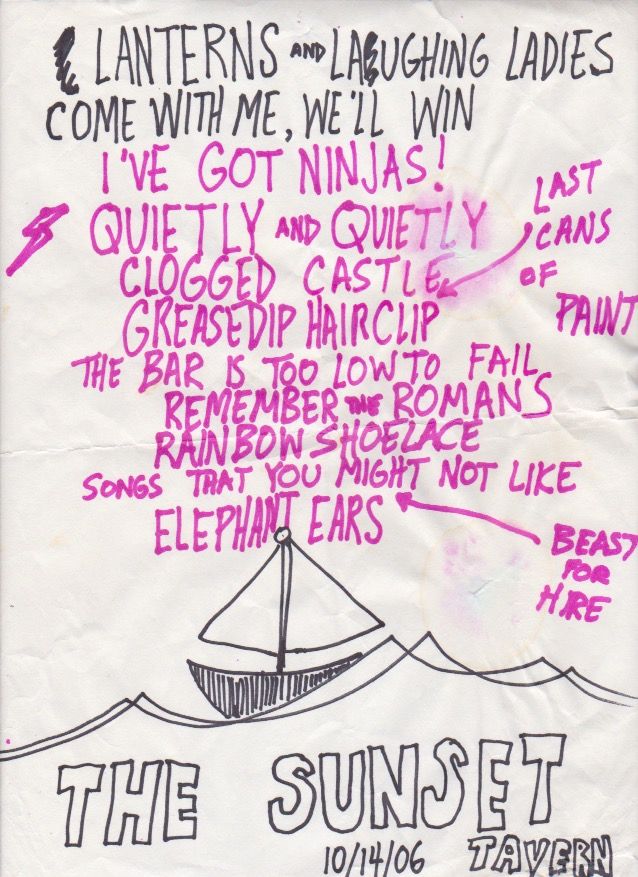 LANTERNS AND LAUGHING LADIES
COME WITH ME, WE'LL WIN
I'VE GOT NINJAS!
QUIETLY AND QUIETLY
CLOGGED CASTLE
GREASEDIP HAIRCLIP
THE BAR IS TOO LOW TO FAIL
REMEMBER THE ROMANS
RAINBOW SHOELACE
SONGS THAT YOU MIGHT NOT LIKE
ELEPHANT EARS
LAST
CANS
OF
PAINT
BEAST
FOR
HIRE
THE SUNSET
10/14/06 TAVERN